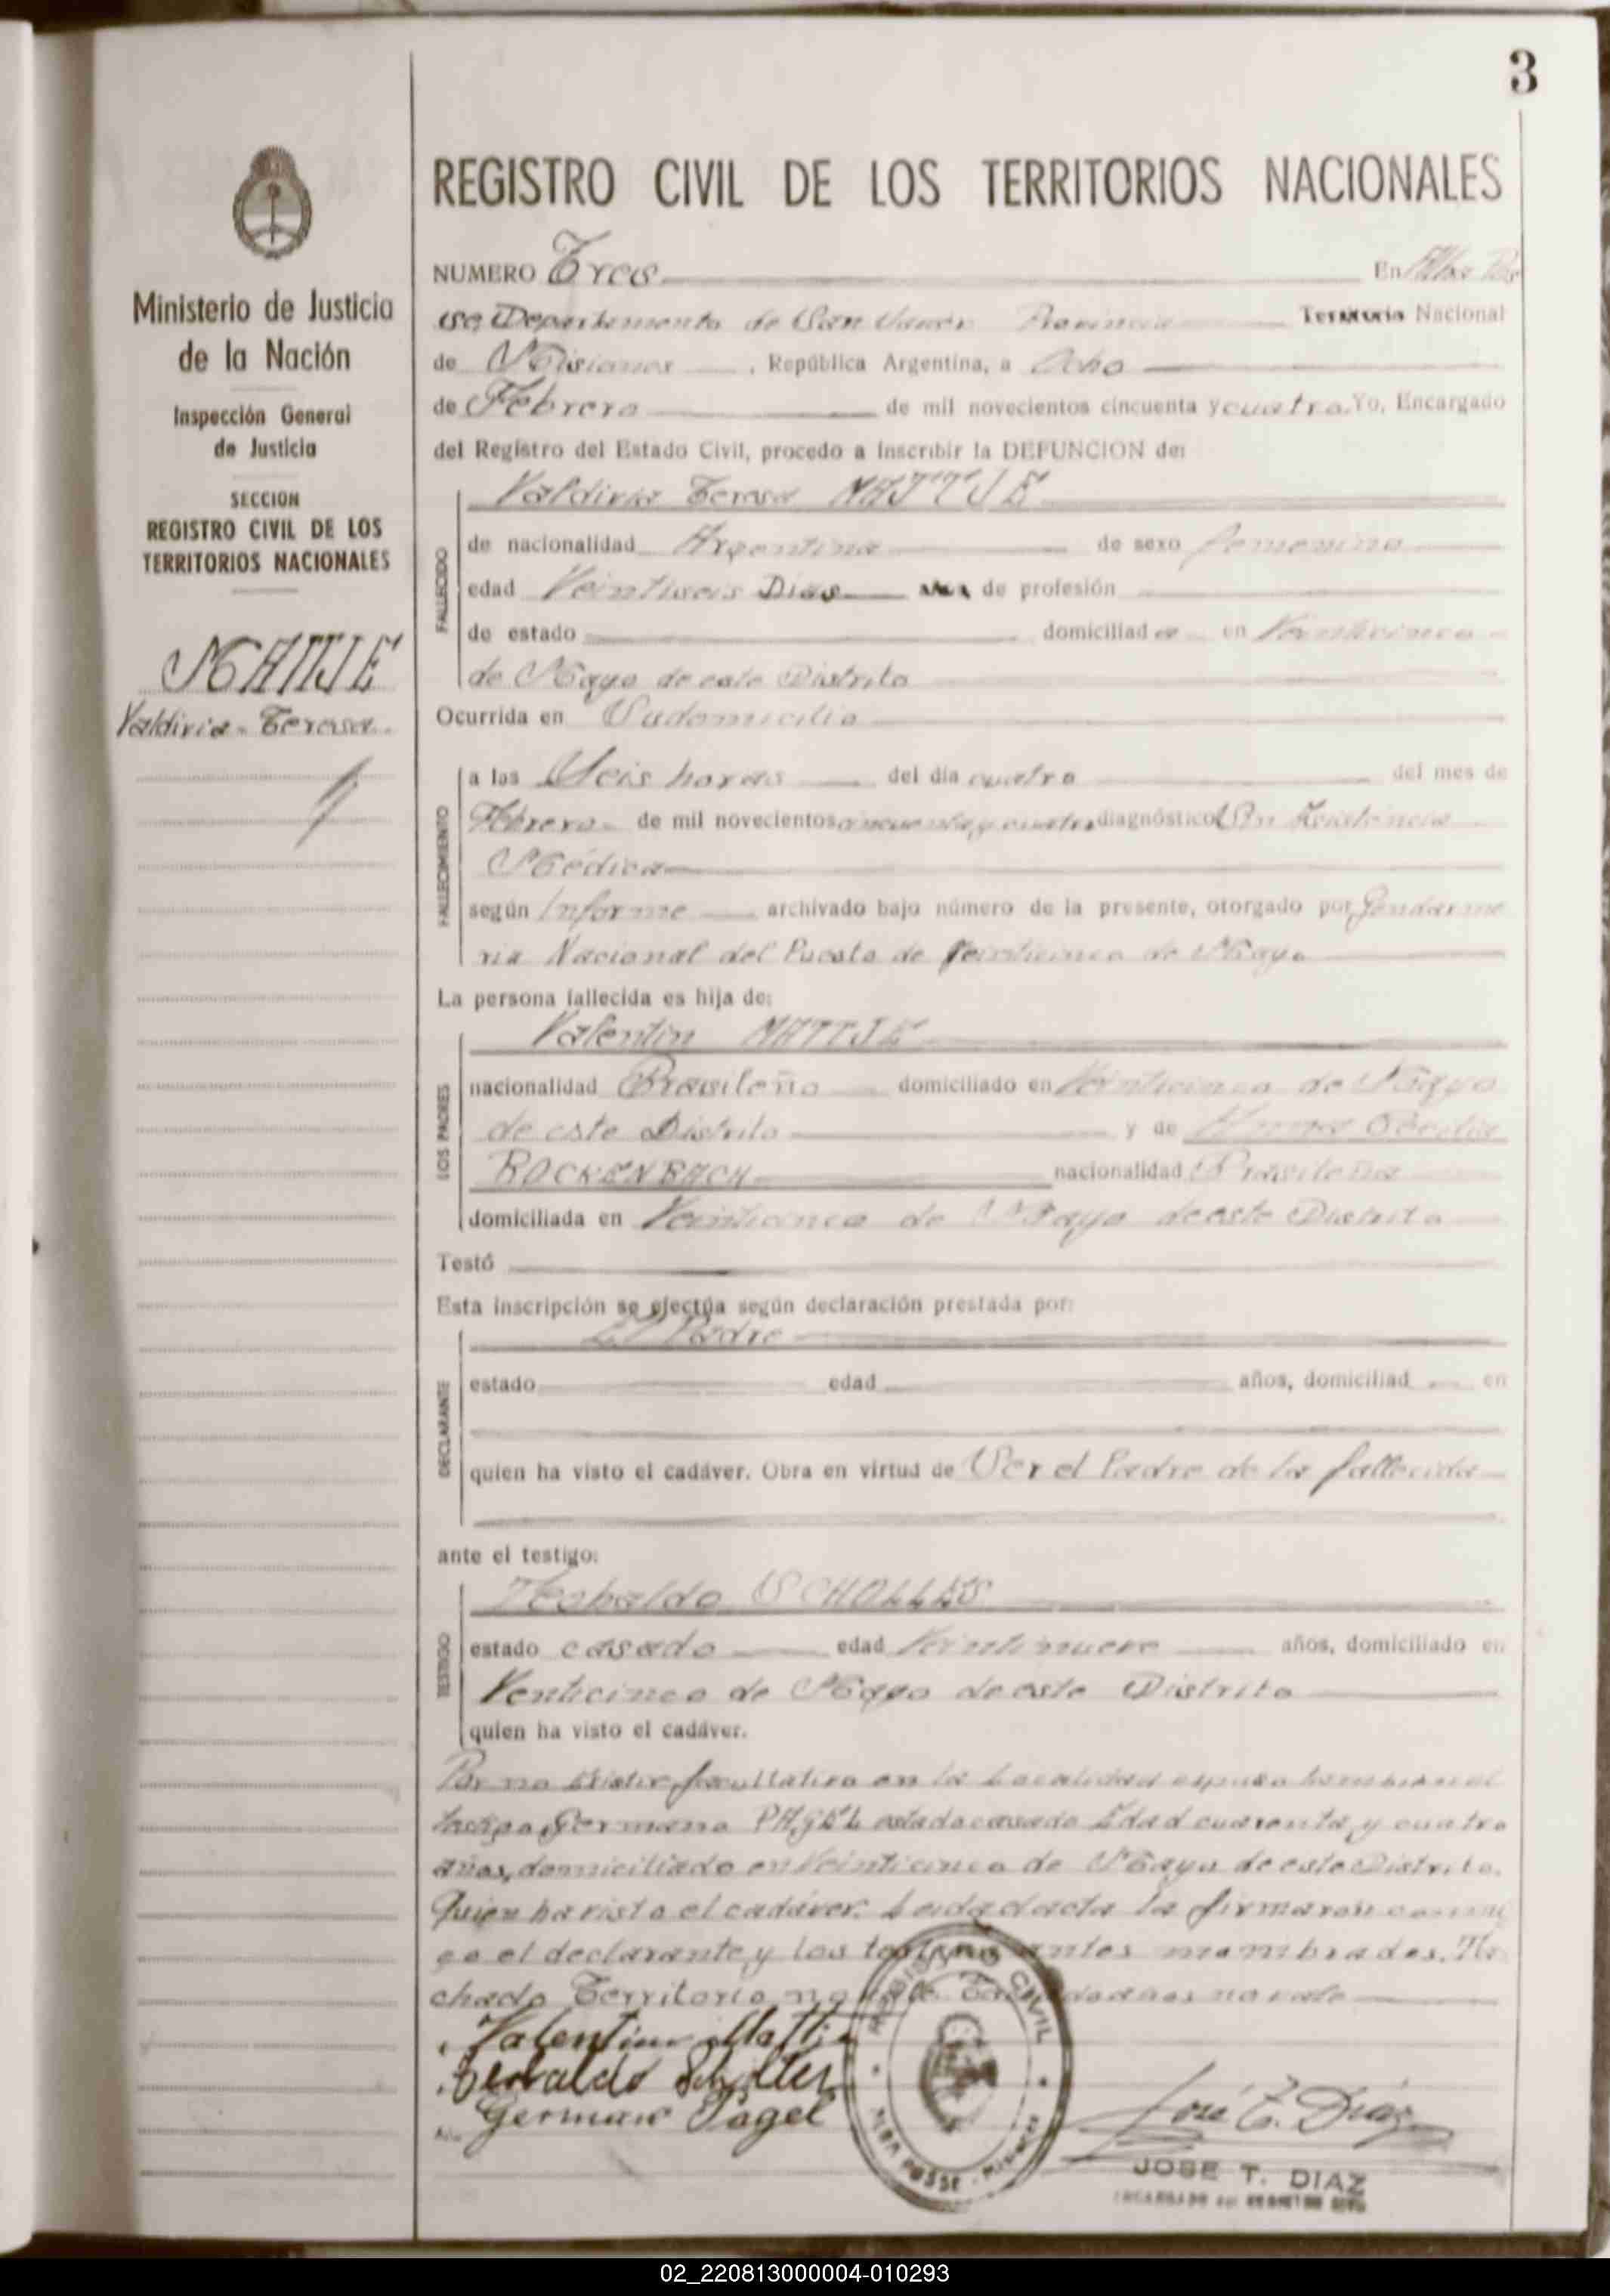 3
Ministerio de Justicia
de la Nación
Inspección General
de Justicia
SECCION
REGISTRO CIVIL DE LOS
TERRITORIOS NACIONALES
MATTJE
Valdivia - Teresa
REGISTRO CIVIL DE LOS TERRITORIOS NACIONALES
NUMERO Tres En Alba Po
se, Departamento de San Javier Provincia Territorio Nacional
de Misiones, República Argentina, a Ocho
de Febrero de mil novecientos cincuenta y cuatro. Yo, Encargado
del Registro del Estado Civil, procedo a inscribir la DEFUNCION de:
Valdivia Teresa MATTJE
FALLECIDO
de nacionalidad Argentina de sexo femenino
edad Veintiseis Dias de profesión
de estado domiciliada en Veinticinco
de Mayo de este Distrito
Ocurrida en Su domicilio
FALLECIMIENTO
a las Seis horas del día cuatro del mes de
Febrero de mil novecientos cincuenta y cuatro diagnóstico Sin Asistencia
Médica
según Informe archivado bajo número de la presente, otorgado por Gendarme
ria Nacional del Puesto de Veinticinco de Mayo
La persona fallecida es hija de:
LOS PADRES
Valentin MATTJE
nacionalidad Brasileño domiciliado en Veinticinco de Mayo
de este Distrito y de
ROCKENBACH nacionalidad Brasileña
domiciliada en Veinticinco de Mayo de este Distrito
Testó
Esta inscripción se efectúa según declaración prestada por:
DECLARANTE
El Padre
estado edad años, domiciliad en
quien ha visto el cadáver. Obra en virtud de Ser el Padre de la fallecida
ante el testigo:
TESTIGO
Teobaldo SCHOLLES
estado casado edad Veintinueve años, domiciliado en
Venticinco de Mayo de este Distrito
quien ha visto el cadáver.
Por no existir facultativo en la Localidad
testigo Germano PAGEL estado casado Edad cuarenta y cuatro
años, domiciliado en Veinticinco de Mayo de este Distrito.
Quien ha visto el cadáver. Leida el acta la firmaron conmi
go el declarante y los testigos antes mombrados. Ta
chado Territorio no vale no vale
Valentin Mattje
Teobaldo Scholles
German Pagel
REGISTRO CIVIL
ALBA POSSE - Misiones
José T. Díaz
JOSE T. DIAZ
ENCARGADO del REGISTRO CIVIL
02_220813000004-010293